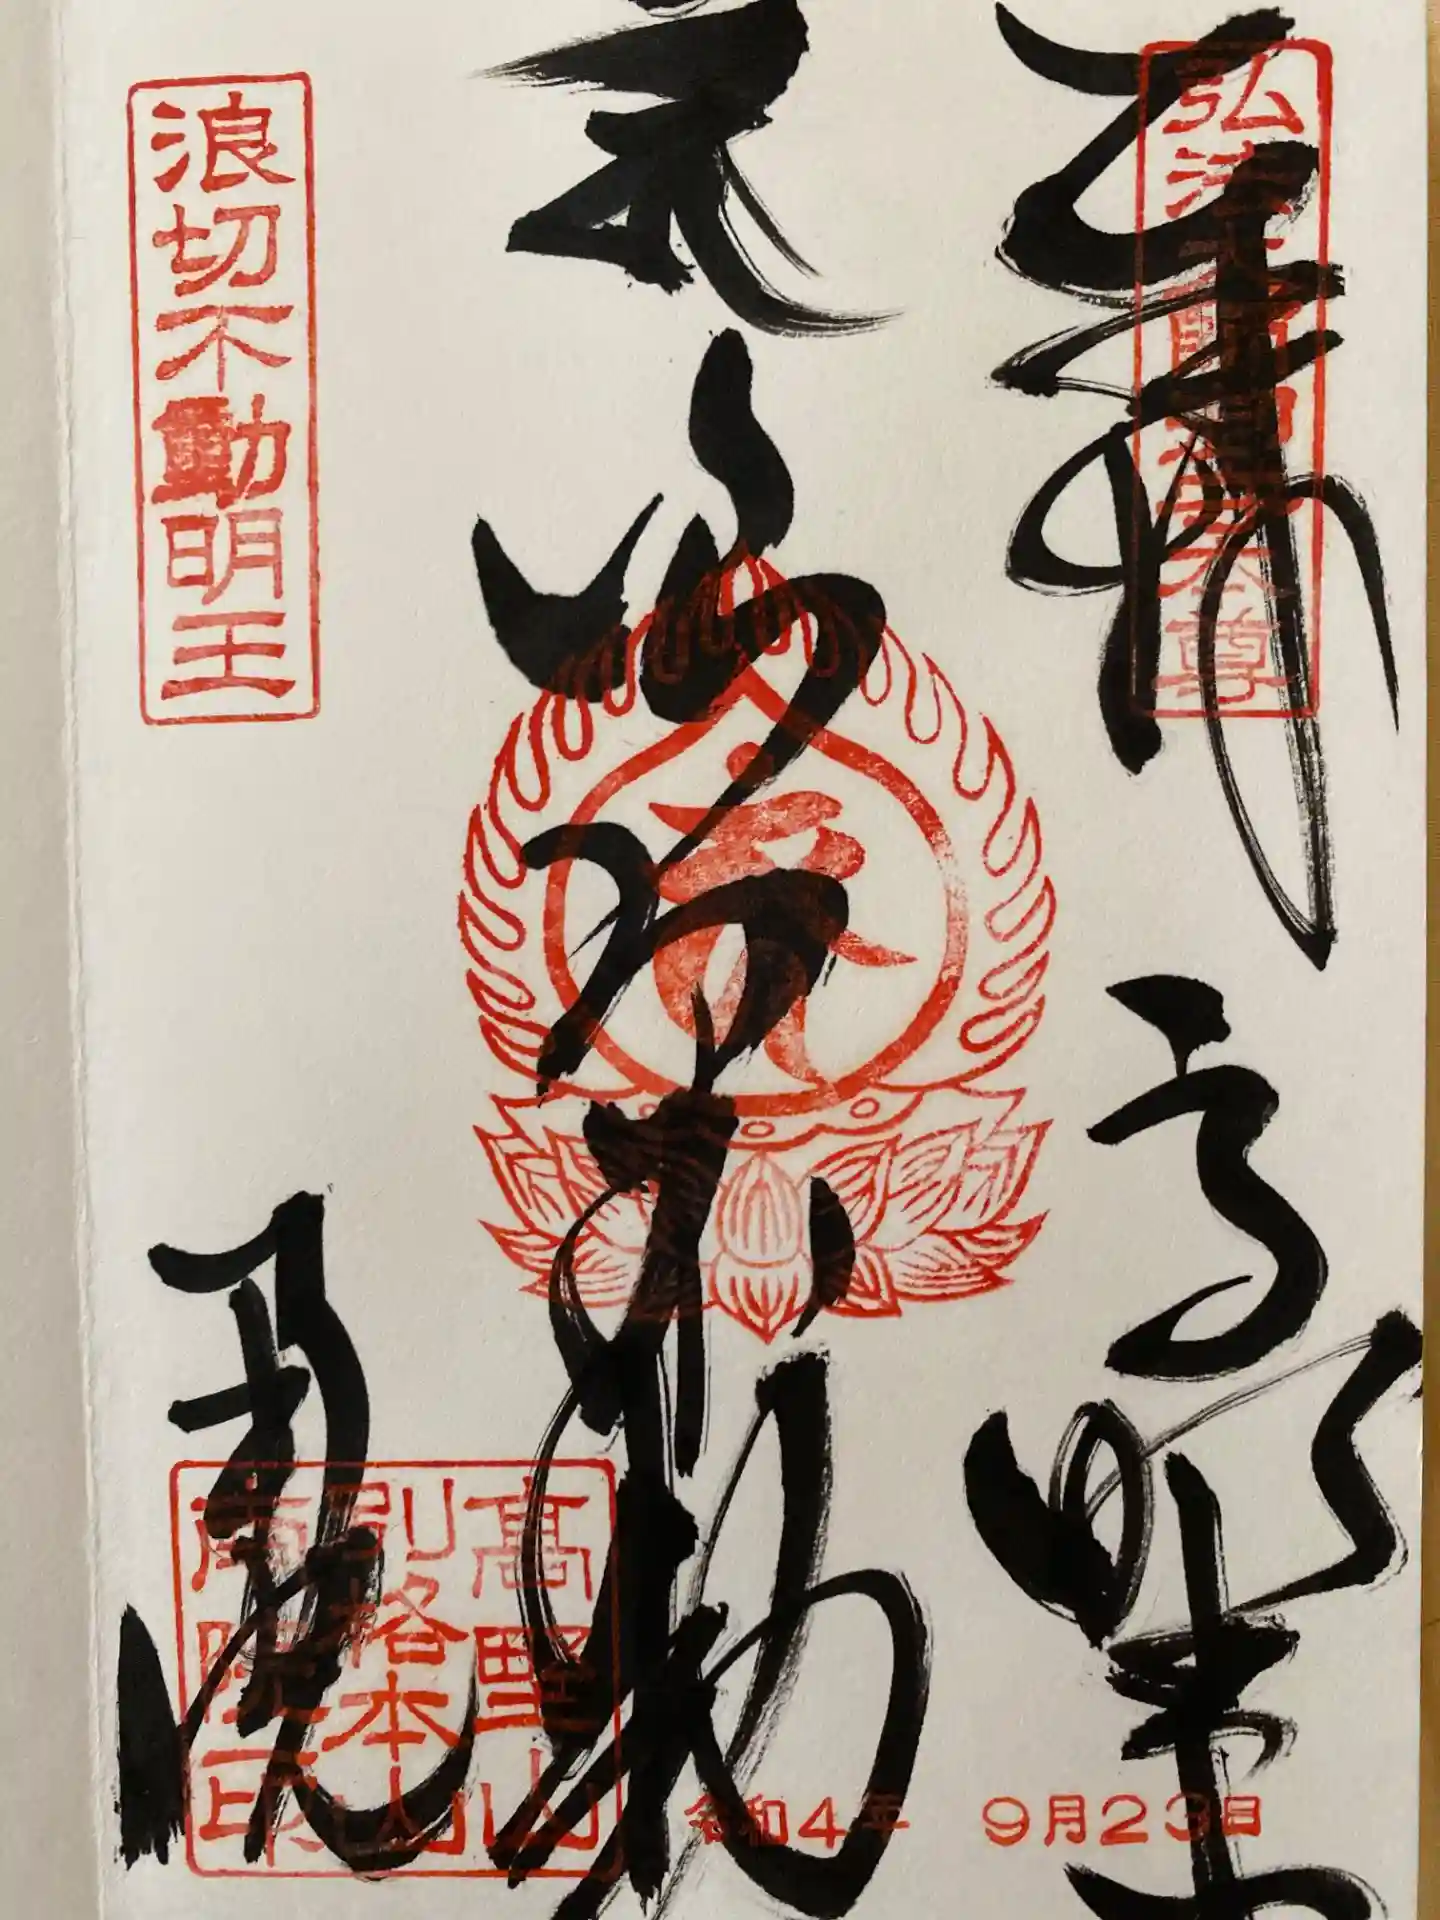 奉拝 高野山
弘法大師
尊
浪切不動
浪切不動明王
南院
高野山
別格本山
南院印
令和4年 9月23日